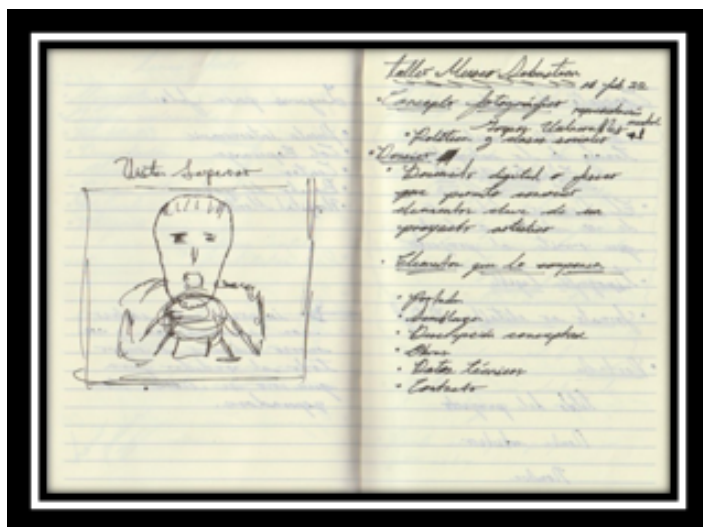 Vista Superior
Taller Museo Sebastian
14 feb 22
• Concepto fotográfico
Grupos Vulnerables
• Política y clases sociales
• Dossier
• Documento digital o físico
que permite conocer
elementos clave de un
proyecto artístico
• Elementos que lo componen
• Portada
• Semblanza
• Descripción conceptual
• Obras
• Datos técnicos
• Contacto